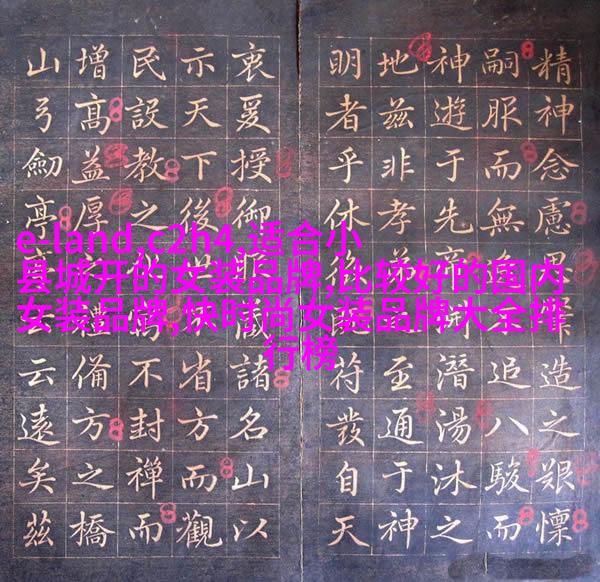 精神念慮造之艱懍
嗣服而無追八駿而
神遊于先潛湯沐之
地茲非孝至通于神
明者乎休符發自天
衷爰授御諸名山以
示天下後省方而觀
民設教之不封禪而
增高益厚備方之橋
山弓劒亭云遠矣茲
e-land,c2h4,适合小
县城开的女装品牌,比较好的国内
女装品牌,快时尚女装品牌大全排
行榜